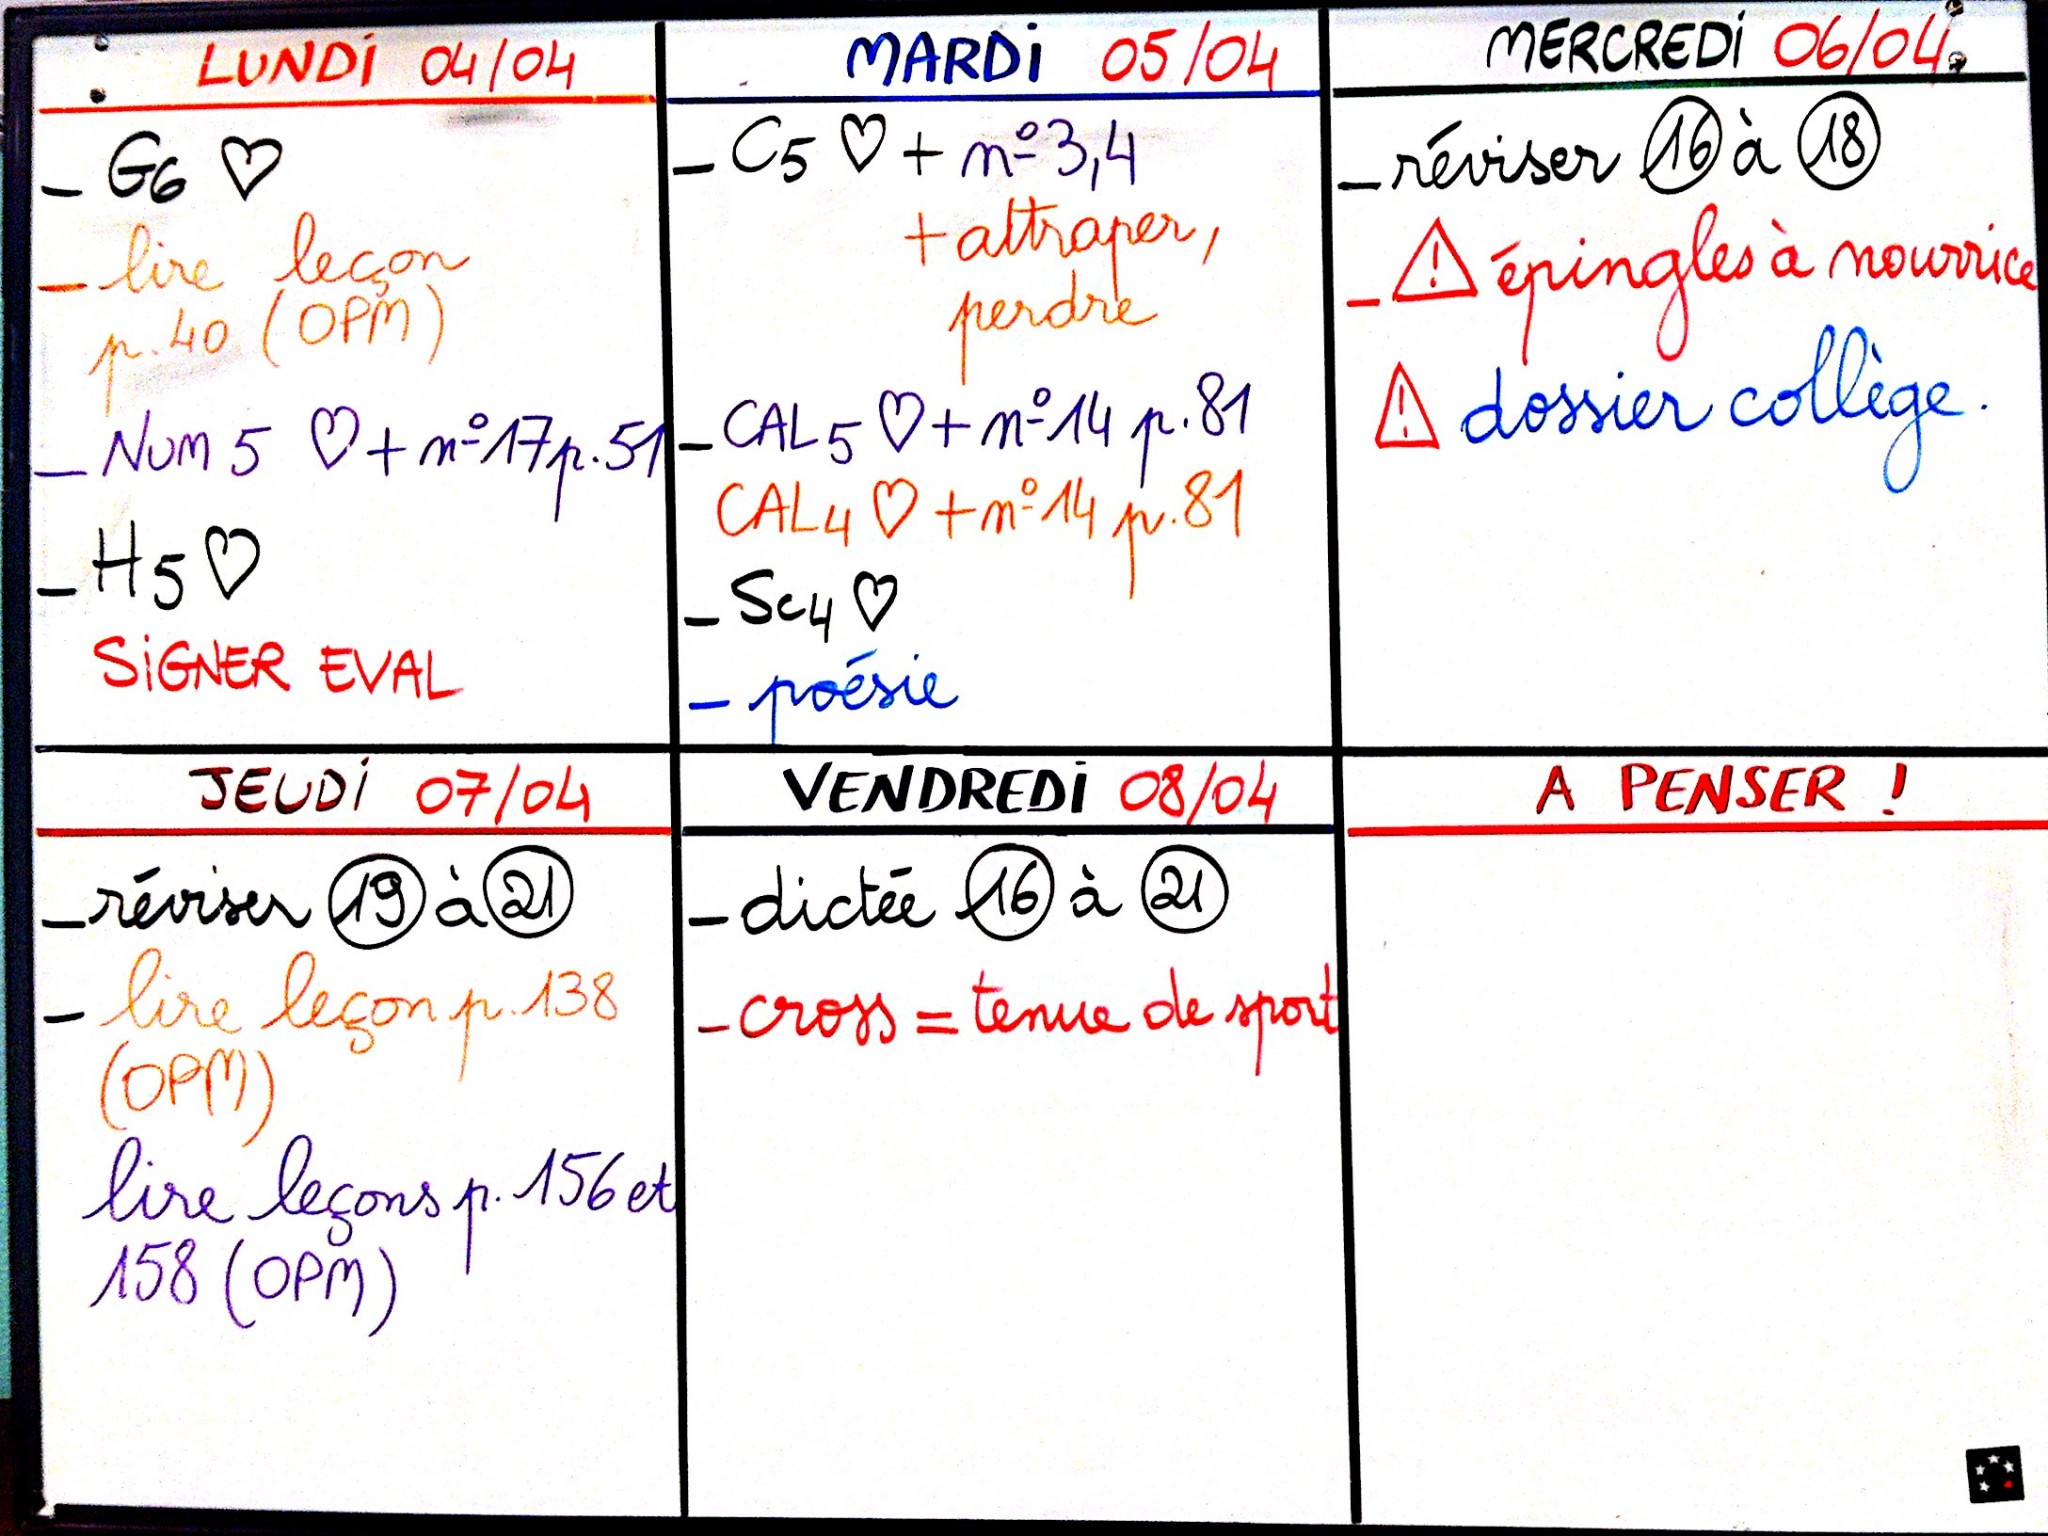 LUNDI 04/04
- G6 ♡
- lire leçon
p.40 (OPM)
- Num 5 ♡ + n°17 p.51
- H5 ♡
SIGNER EVAL
MARDI 05/04
- C5 ♡ + n°3,4
+ attraper,
perdre
- CAL5 ♡ + n°14 p.81
CAL4 ♡ + n°14 p.81
- Sc4 ♡
- poésie
MERCREDI 06/04
- réviser 16 à 18
- ⚠ épingles à nourrice
⚠ dossier collège.
JEUDI 07/04
- réviser 19 à 21
- lire leçon p.138
(OPM)
lire leçons p.156 et
158 (OPM)
VENDREDI 08/04
- dictée 16 à 21
- cross = tenue de sport
A PENSER !